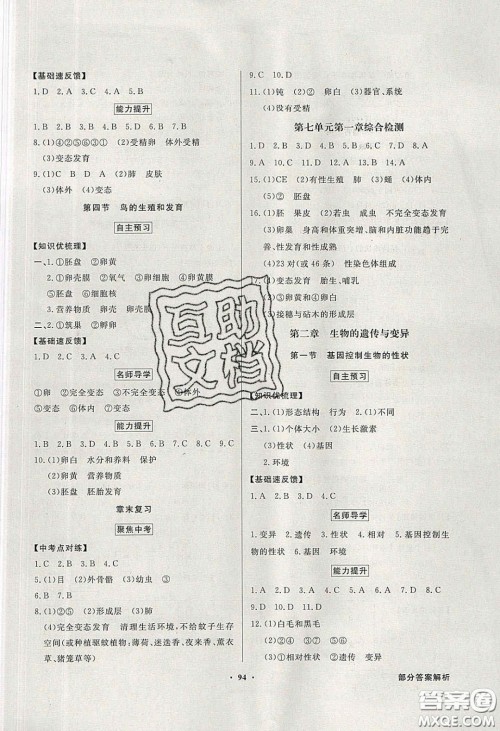 【基础速反馈】
1. D　2. A　3. A　4. A　5. B
能力提升
1. B　2. B　3. D　4. B　5. A　6. D　7. B
8. (1)④②⑤⑥③①　(2)受精卵　体外受精
(3)变态发育
9. (1)A　D　B　C　(2)肺　皮肤
(3)体外　(4)变态
第四节　鸟的生殖和发育
自主预习
【知识优梳理】
一、1. ①胚盘　②卵黄　③卵白
2. ①卵壳膜　②氧气　③卵细胞膜
④胚盘　⑤细胞核
3. 营养物质　卵壳　卵壳膜
二、①筑巢　②孵卵
【基础速反馈】
1. B　2. A　3. D　4. C
名师导学
①卵生　②完全变态　③不完全变态　④体外
⑤变态　⑥体内　⑦无变态
能力提升
1. B　2. B　3. C　4. D　5. A　6. D　7. B　8. B　9. D
10. (1)卵白　水分和养料　保护
(2)卵黄　营养物质
(3)胚盘　胚胎发育
章末复习
聚焦中考
【中考点对练】
1. D　2. B　3. B　4. D　5. B　6. C
7. (1)目　(2)外骨骼　(3)幼虫　(4)③
8. (1)②⑤　(2)形成层　(3)卵白
(4)完全变态发育　清理生活环境,不给蚊子生存
空间(或种植驱蚊植物;薄荷、迷迭香、夜来香、薰衣
草、猪笼草等)
9. C　10. D
11. (1)钝　(2)②　卵白　(3)器官、系统
(4)没有受精
第七单元第一章综合检测
15. (1)CE　(2)有性生殖　(3)蛹　(4)体内
(5)②　胚盘
16. (1)胚　果皮　(2)若虫　成虫　不完全变态发育
(3)卵巢　身高和体重突增、脑和内脏功能趋于完
善、性发育和性成熟
(4)23对(或46条)　性染色体组成
17. (1)变态发育　胎生、哺乳
(2)③卵黄和④卵白
(3)接穗与砧木的形成层
第二章　生物的遗传与变异
第一节　基因控制生物的性状
自主预习
【知识优梳理】
二、1. (1)形态结构　行为　(2)不同
三、1. (1)个体大小　(2)生长激素
(3)性状　(4)基因
2. 环境
【基础速反馈】
1. A　2. D　3. B　4. C
名师导学
1. 变异　2. 遗传　3. 性状　4. 相对性状　6. 基因控制生
物的性状
能力提升
12. (1)白毛和黑毛
(2)②③④　③　(3)⑤
(4)①相对性状　②遗传　③环境
94
部分答案解析
互助文档
答案圈
MXQE.COM